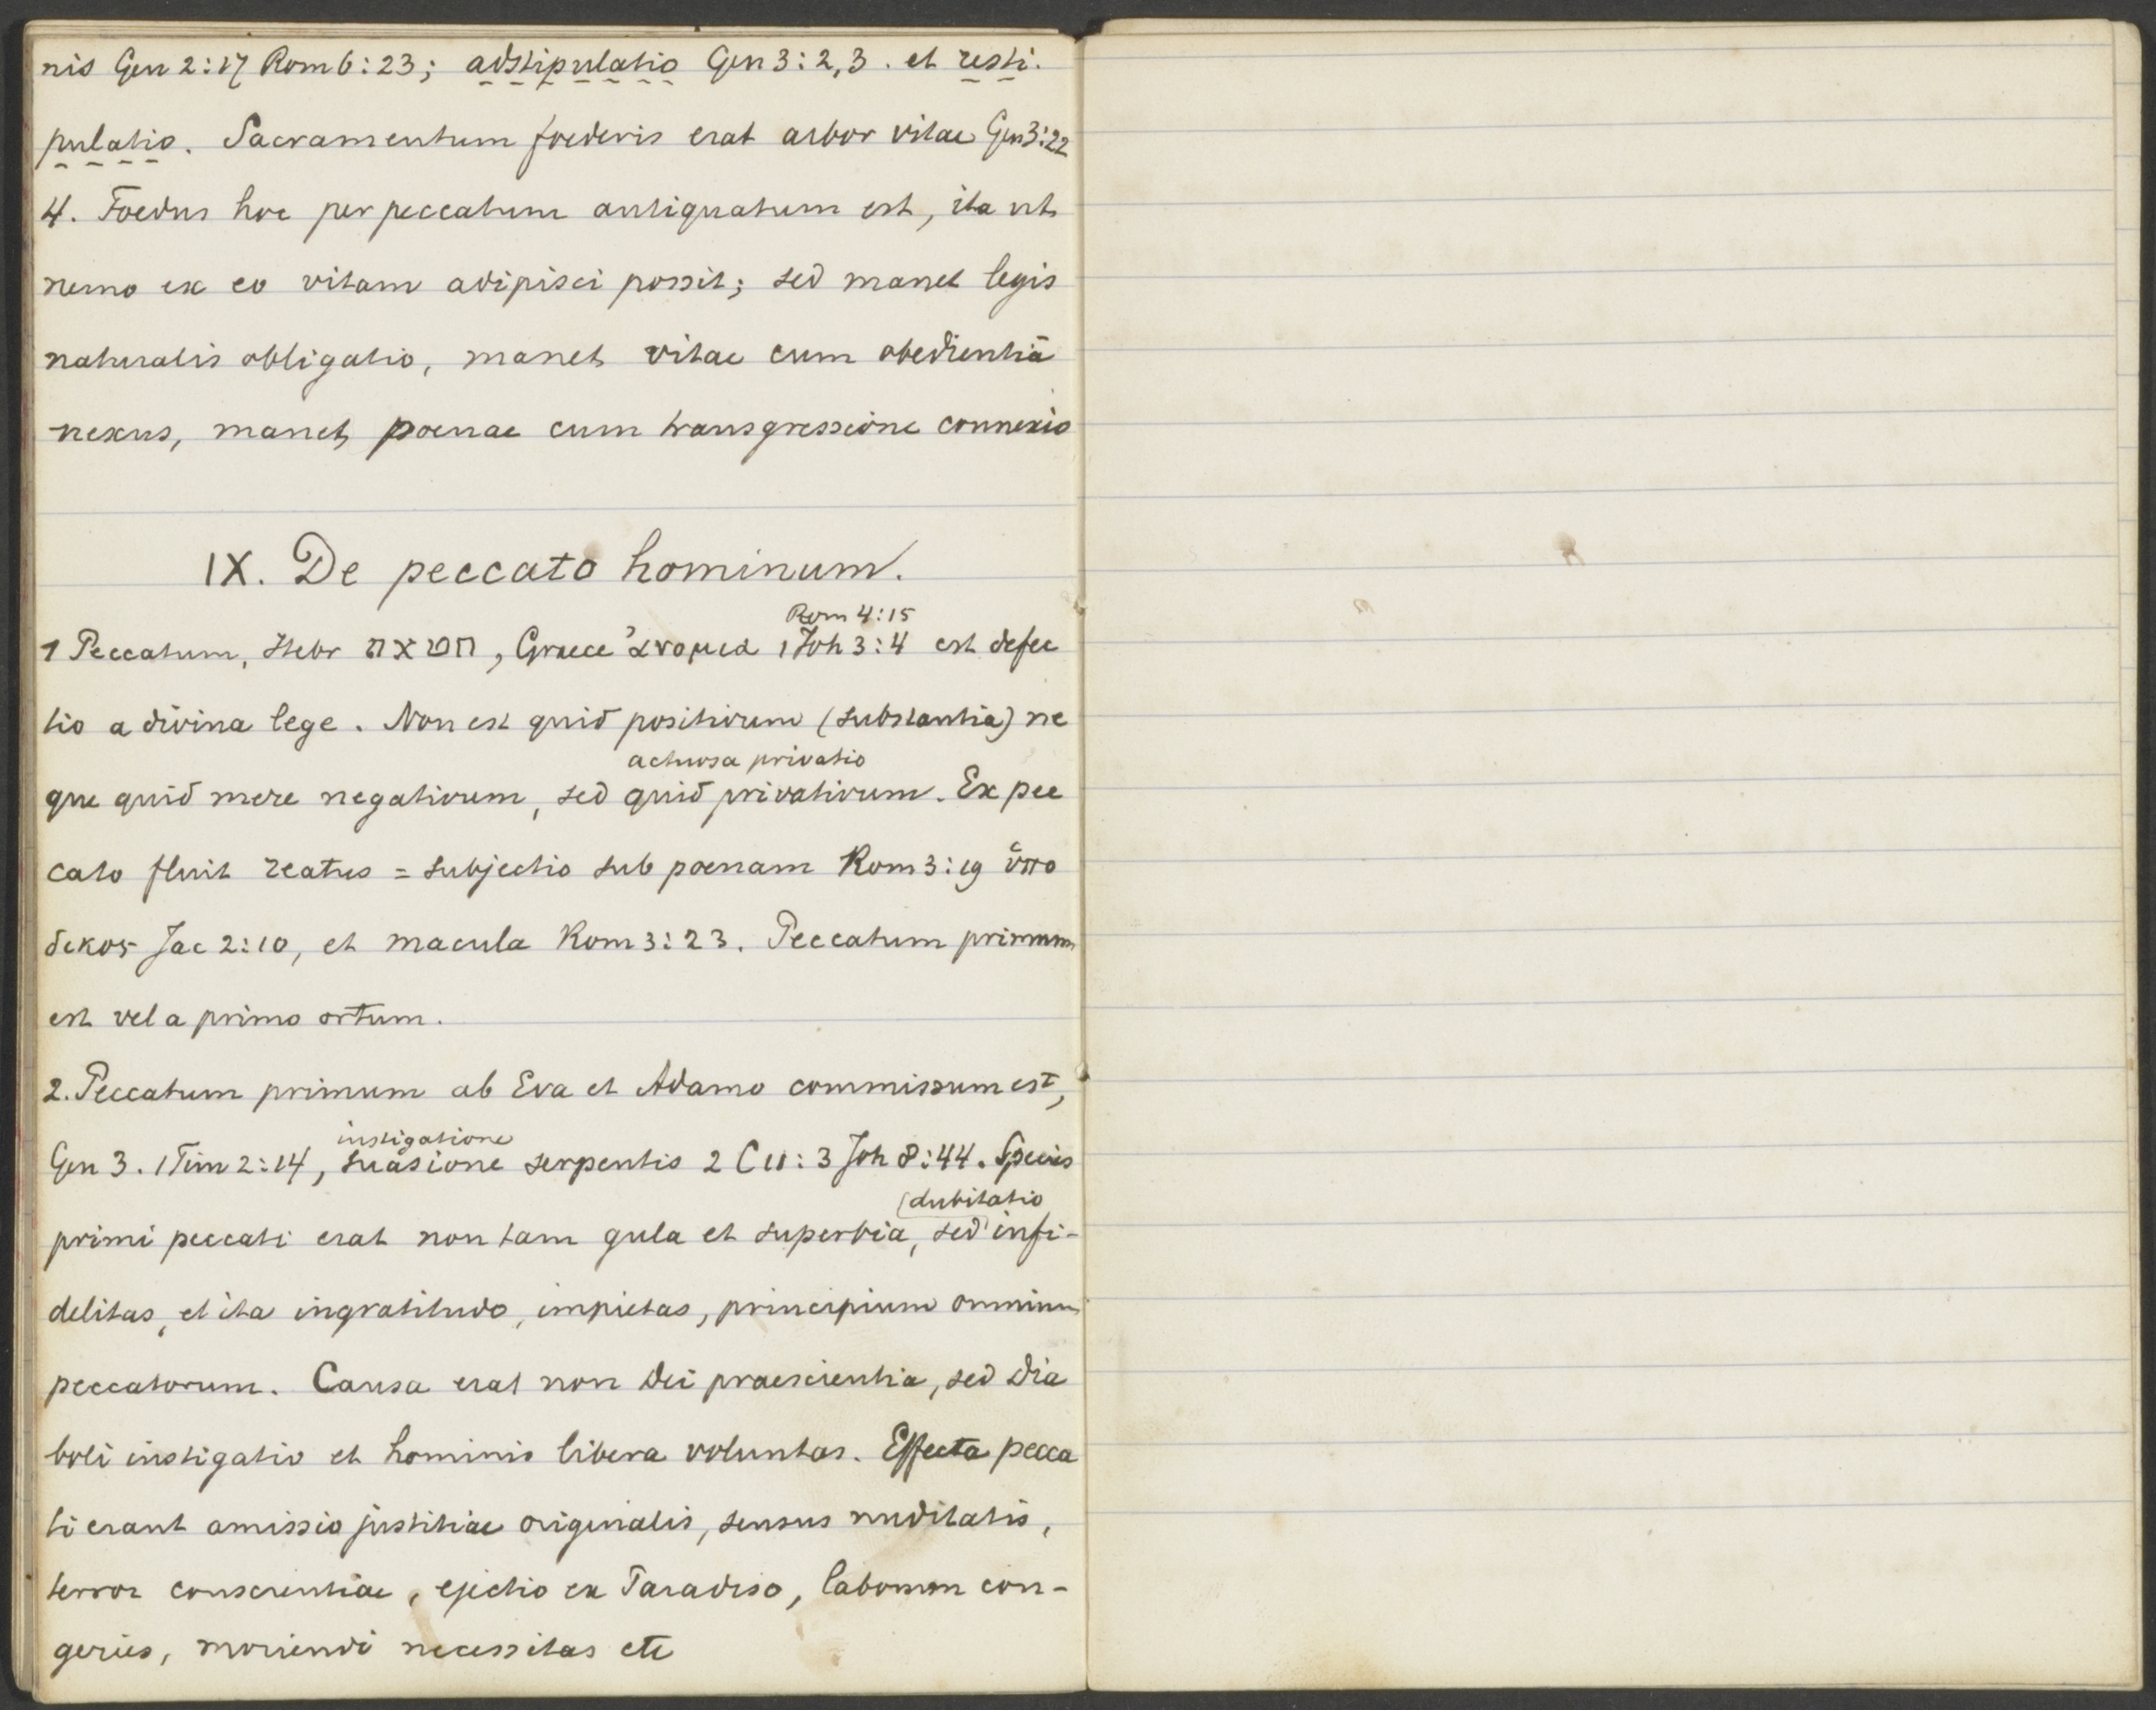 nis Gen 2:17 Rom 6:23; adstipulatio Gen 3:2,3. et resti-
pulatio. Sacramentum foederis erat arbor vitae Gen 3:22
4. Foedus hoc per peccatum antiquatum est, ita ut
nemo ex eo vitam adipisci possit; sed manet legis
naturalis obligatio, manet vitae cum obedientiā
nexus, manet poenae cum transgressione connexio
IX. De peccato hominum.
Rom 4:15
1 Peccatum, Hebr חטאת, Graece ἀνομια 1 Joh 3:4 est defec
tio a divina lege. Non est quid positivum (substantia) ne
actuosa privatio
que quid mere negativum, sed quid privativum. Ex pec
cato fluit reatus = subjectio sub poenam Rom 3:19 ὑπο
δικος Jac 2:10, et macula Rom 3:23. Peccatum primum
est vel a primo ortum.
2. Peccatum primum ab Eva et Adamo commissum est,
instigatione
Gen 3. 1 Tim 2:14, suasione serpentis 2 C 11:3 Joh 8:44. Species
(dubitatio
primi peccati erat non tam gula et superbia, sed infi-
delitas, et ita ingratitudo, impietas, principium omnium
peccatorum. Causa erat non Dei praescientia, sed dia
boli instigatio et hominis libera voluntas. Effecta pecca
ti erant amissio justitiae originalis, sensus nuditatis,
terror conscientiae, ejectio ex Paradiso, laborum con-
geries, moriendi necessitas etc